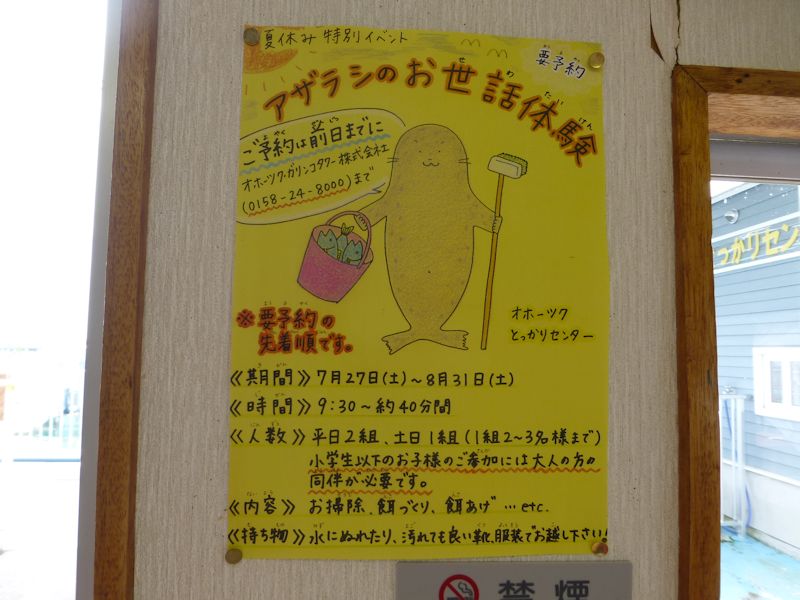 夏休み 特別イベント
要予約
アザラシのお世話体験
ご予約は前日までに
オホーツク・ガリンコタワー株式会社
(0158-24-8000)まで
※要予約の
先着順です。
オホーツク
とっかりセンター
《期間》7月27日(土)~8月31日(土)
《時間》9:30~約40分間
《人数》平日2組、土日1組(1組2~3名様まで)
小学生以下のお子様のご参加には大人の方の
同伴が必要です。
《内容》お掃除、餌づくり、餌あげ…etc.
《持ち物》水にぬれたり、汚れても良い靴、服装でお越し下さい!
禁煙
っかりセン